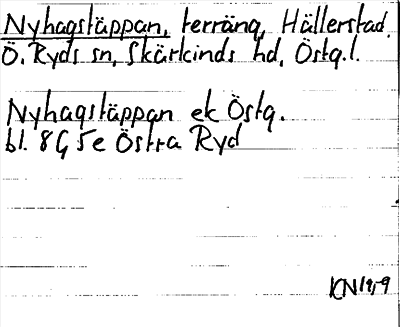 Nyhagstäppan, terräng, Hällerstad,
Ö. Ryds sn, Skärkinds hd, Östg.l.
Nyhagstäppan ek Östg.
bl. 8G 5e Östra Ryd